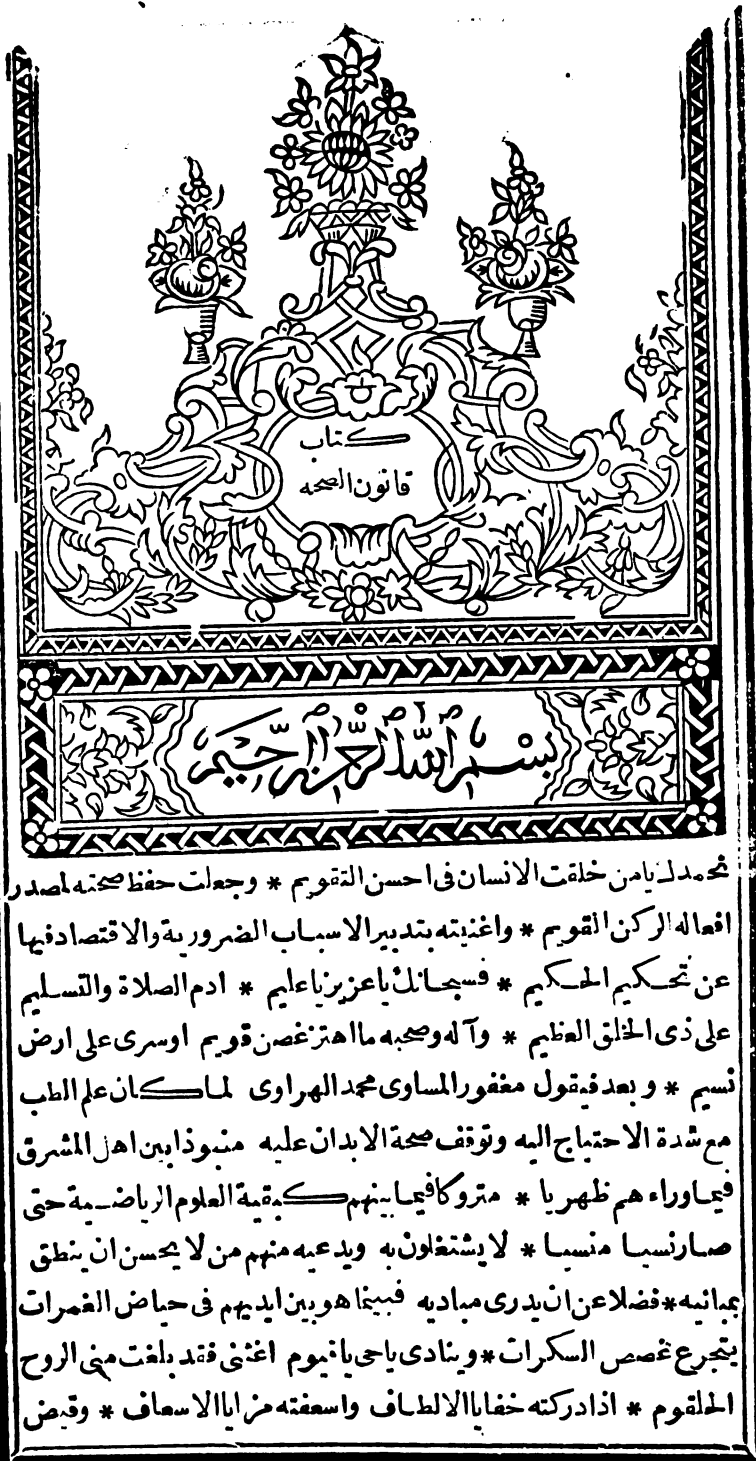 كتاب
قانون الصحه
بسم الله الرحمن الرحيم
نحمدك يا من خلقت الانسان فى احسن التقويم * وجعلت حفظ صحته لمصدر
افعاله الركن القويم * واغنيته بتدبير الاسباب الضرورية والاقتصاد فيها
عن تحكيم الحكيم * فسبحانك يا عزيز يا عليم * ادم الصلاة والتسليم
على ذى الخلق العظيم * وآله وصحبه ما اهتز غصن قويم او سرى على ارض
نسيم * وبعد فيقول مغفور المساوى محمد الهراوى لما كان علم الطب
مع شدة الاحتياج اليه وتوقف صحة الابدان عليه منبوذا بين اهل المشرق
فيما وراءهم ظهريا * متروكا فيما بينهم كبقية العلوم الرياضية حتى
صار نسيا منسيا * لا يشتغلون به ويدعيه منهم من لا يحسن ان ينطق
بمبانيه * فضلا عن ان يدرى مباديه فبينما هو بين ايديهم فى حياض الغمرات
يتجرع غصص السكرات * وينادى ياحى ياقيوم اغثنى فقد بلغت منى الروح
الحلقوم * اذ ادركته خفايا الالطاف واسعفته مزايا الاسعاف * وقيض